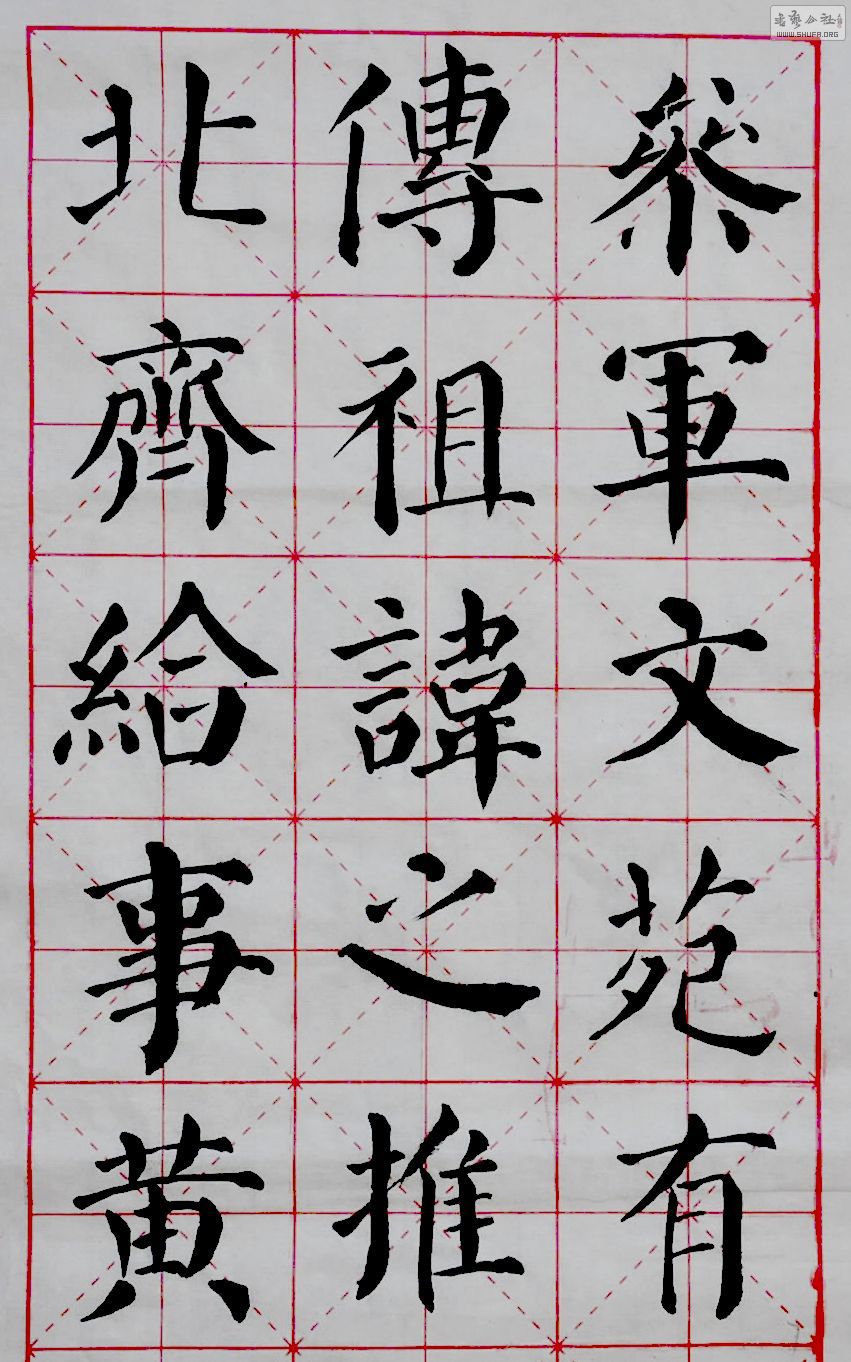 叅軍文苑有
傳祖諱之推
北齊給事黃
书艺公社
WWW.SHUFA.ORG